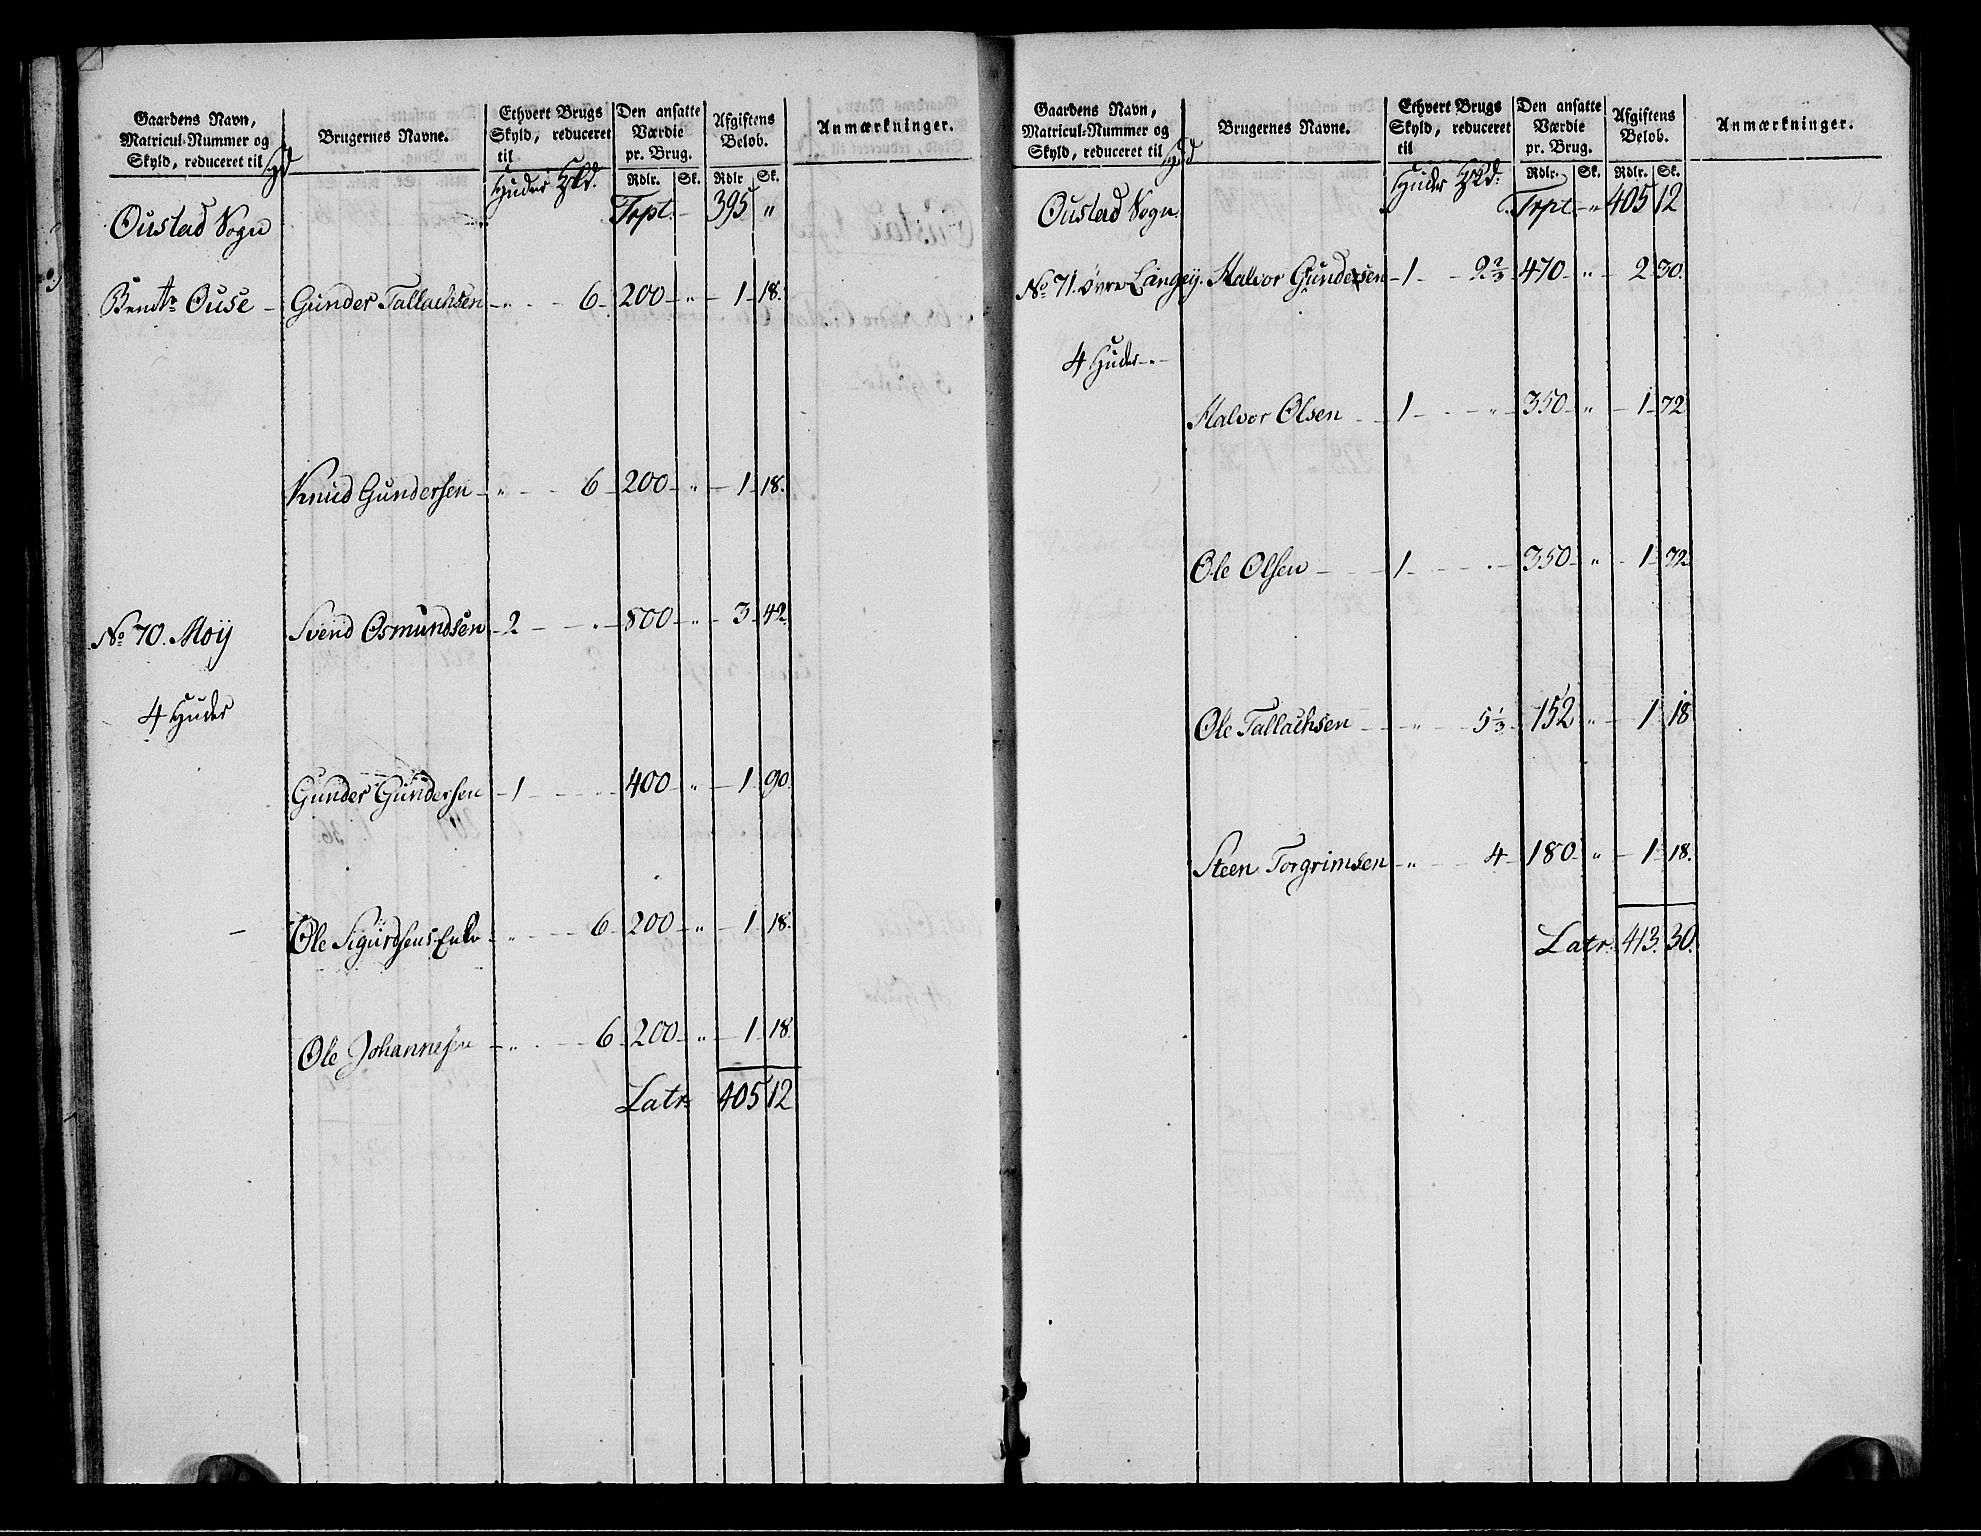 Gaardens Navn, Matricul-Nummer og Skyld, reduceret til Hd | Brugernes Navne. | Ethvert Brugs Skyld, reduceret til Huder | Den ansatte Værdie pr. Brug. Rdlr. Sk. | Afgiftens Beløb. Rdlr Sk. | Anmærkninger.
Oustad Sogn Trpt. - 395 "
Bemte Ouse - Gunder Tallachsen - " - 6 200 " 1 18.
Knud Gundersen - " - 6 200 " 1 18.
No 70. Moÿ Svend Osmundsen 2 - . 800 " 3 42.
4 Huder
Gunder Gundersen 1 - . 400 " 1 90.
Ole Sigurdsens Enke " - 6 200 " 1 18.
Ole Johannesen " - 6 200 " 1 18.
Latr. 405 12
Gaardens Navn, Matricul-Nummer og Skyld, reduceret til Hd | Brugernes Navne. | Ethvert Brugs Skyld, reduceret til Huder | Den ansatte Værdie pr. Brug. Rdlr. Sk. | Afgiftens Beløb. Rdlr. Sk. | Anmærkninger.
Oustad Sogn. Trpt - " 405 12
No 71. øvre Langeÿ. Halvor Gundersen 1 - 2 2/3 470 " 2 30.
4 Huder - " -
Halvor Olsen 1 - " 350 " 1 72
Ole Olsen 1 - . 350 " 1 72
Ole Tallachsen " - 5 1/3 152 " 1 18
Steen Torgrimsen " - 4 180 " 1 18.
Latr. 413. 30.